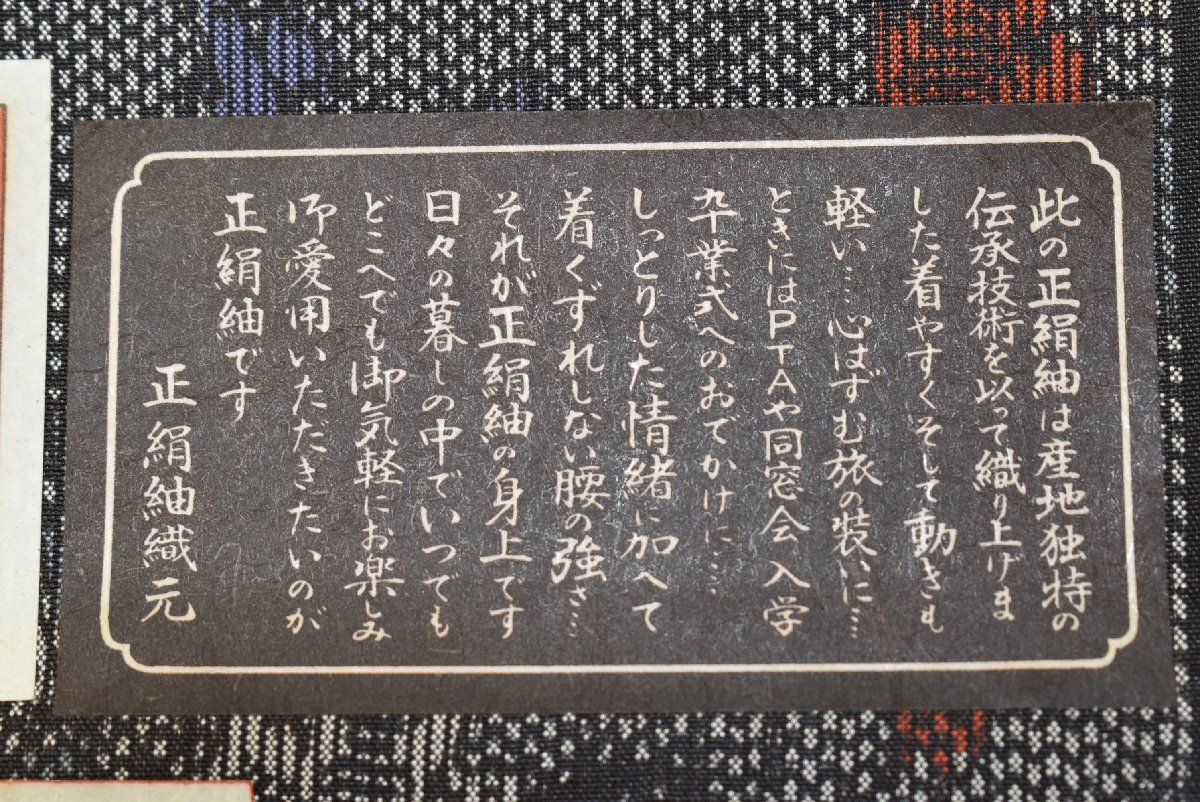 此の正絹紬は産地独特の
伝承技術を以って織り上げま
した着やすくそして動きも
軽い……心はずむ旅の装いに…
ときにはPTAや同窓会 入学
卆業式へのおでかけに……
しっとりした情緒に加へて
着くずれしない腰の強さ……
それが正絹紬の身上です
日々の暮しの中でいつでも
どこへでも御気軽にお楽しみ
御愛用いただきたいのが
正絹紬です
正絹紬織元